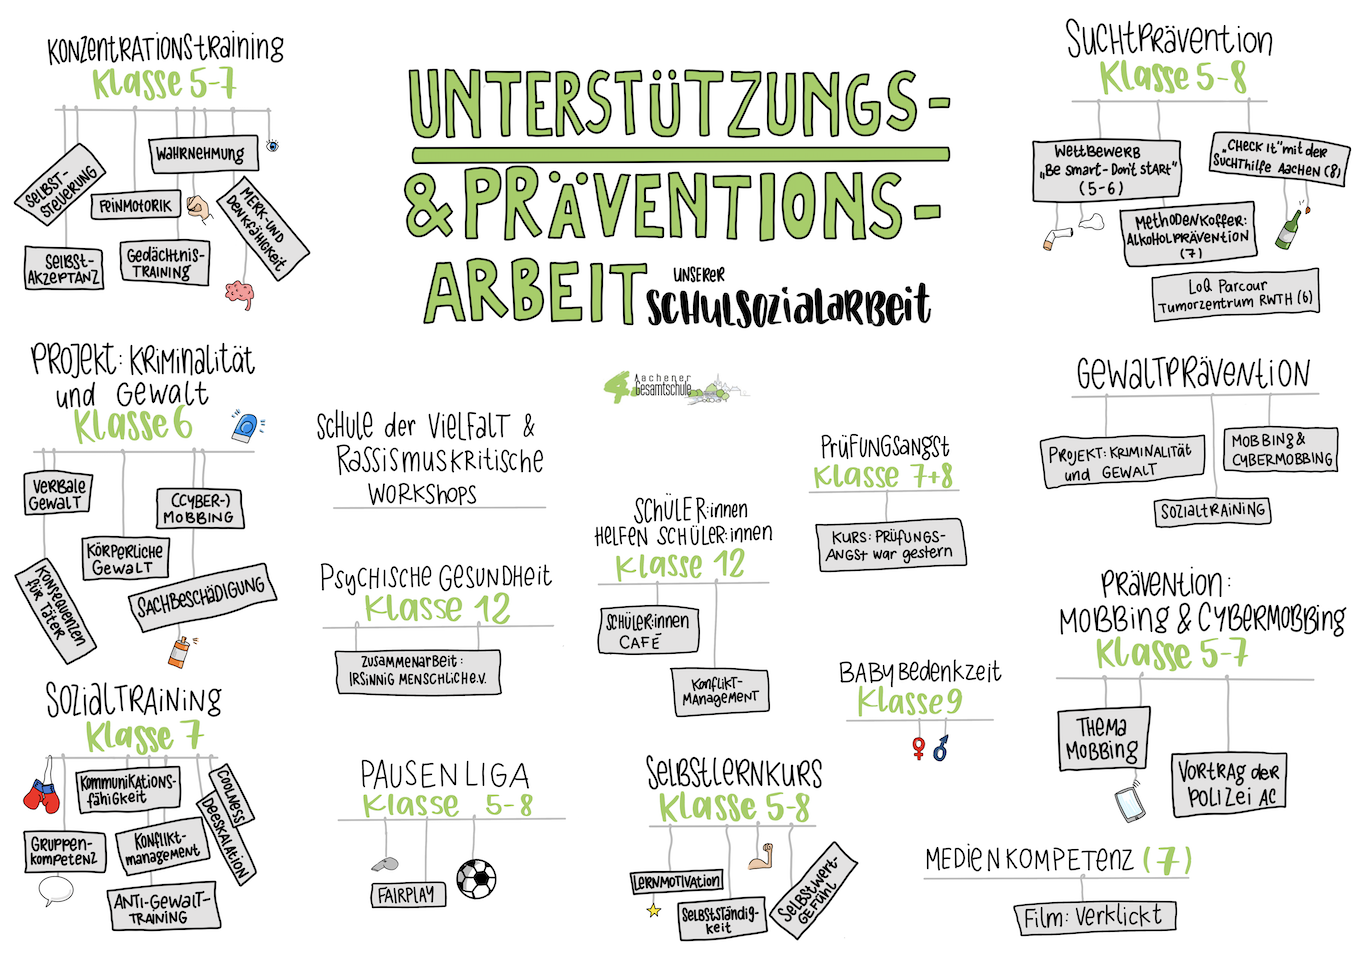 UNTERSTÜTZUNGS-
& PRÄVENTIONS-
ARBEIT UNSERER
SCHULSOZIALARBEIT
4. Aachener
Gesamtschule
KONZENTRATIONSTRAINING
Klasse 5-7
WAHRNEHMUNG
SELBST-
STEUERUNG
FEINMOTORIK
MERK- UND
DENKFÄHIGKEIT
SELBST-
AKZEPTANZ
GEDÄCHTNIS-
TRAINING
PROJEKT: KRIMINALITÄT
und GEWALT
Klasse 6
VERBALE
GEWALT
(CYBER-)
MOBBING
KÖRPERLICHE
GEWALT
KONSEQUENZEN
FÜR TÄTER
SACHBESCHÄDIGUNG
SOZIALTRAINING
Klasse 7
KOMMUNIKATIONS-
fähigkeit
COOLNESS
DEESKALATION
GRUPPEN-
kompetenz
KONFLIKT-
management
ANTI-GEWALT-
TRAINING
SCHULE der VIELFALT &
RASSISMUSKRITISCHE
WORKSHOPS
PSYCHISCHE GESUNDHEIT
Klasse 12
ZUSAMMENARBEIT:
IRSINNIG MENSCHLICH e.V.
PAUSENLIGA
Klasse 5-8
FAIRPLAY
SCHÜLER:innen
HELFEN SCHÜLER:innen
Klasse 12
SCHÜLER:innen
CAFÉ
KONFLIKT-
MANAGEMENT
SELBSTLERNKURS
Klasse 5-8
LERNMOTIVATION
SELBSTSTÄNDIG-
keit
SELBSTWERT-
GEFÜHL
PRÜFUNGSANGST
Klasse 7+8
KURS: PRÜFUNGS-
ANGST war gestern
BABYBEDENKZEIT
Klasse 9
MEDIENKOMPETENZ (7)
Film: Verklickt
SUCHTPRÄVENTION
Klasse 5-8
WETTBEWERB
„Be smart - Don't start"
(5-6)
„CHECK IT" mit der
SUCHTHILFE AACHEN (8)
METHODENKOFFER:
ALKOHOLPRÄVENTION
(7)
LOQ PARCOUR
TUMORZENTRUM RWTH (6)
GEWALTPRÄVENTION
PROJEKT: KRIMINALITÄT
und GEWALT
MOBBING &
CYBERMOBBING
SOZIALTRAINING
PRÄVENTION:
MOBBING & CYBERMOBBING
Klasse 5-7
THEMA
MOBBING
VORTRAG der
POLIZEI AC